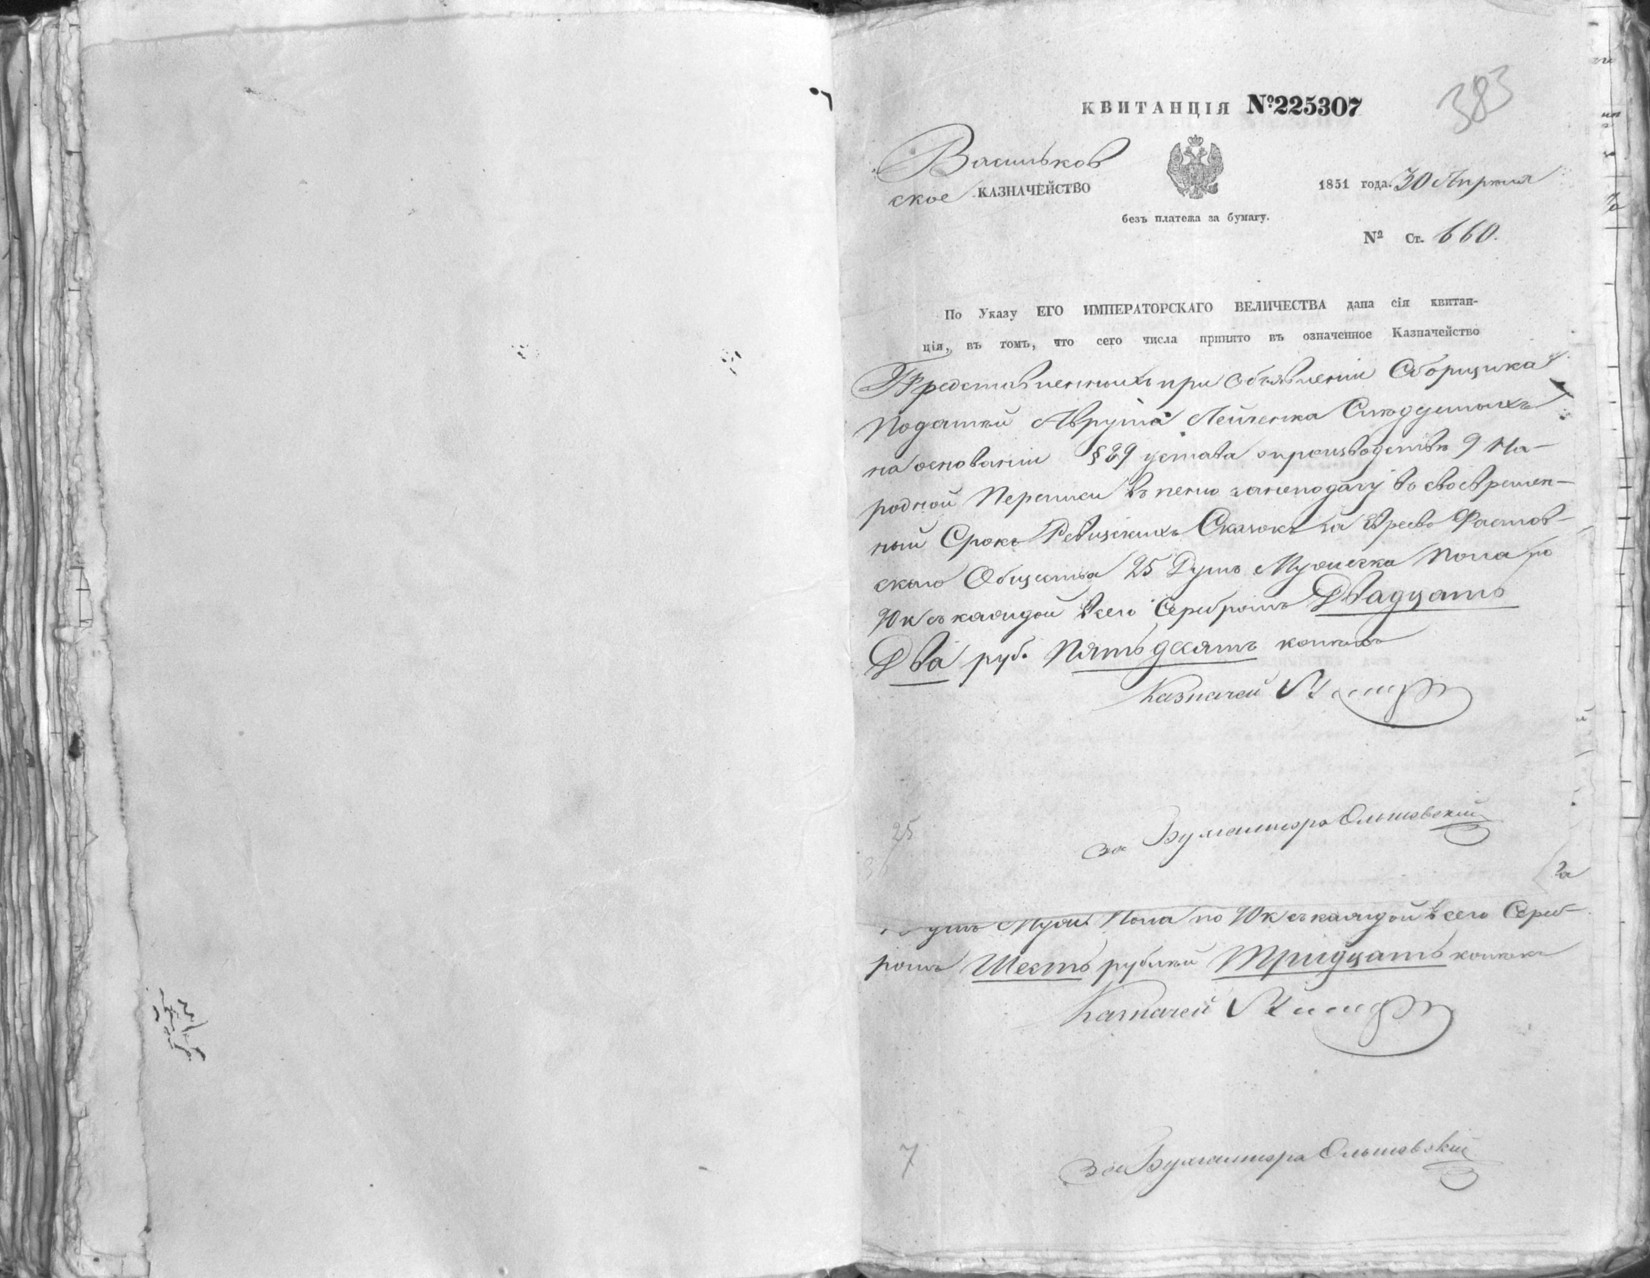 383
КВИТАНЦІЯ №225307
Васильков
ское КАЗНАЧЕЙСТВО
1851 года. 30 Апреля
безъ платежа за бумагу.
№ Ст. 660.
По Указу ЕГО ИМПЕРАТОРСКАГО ВЕЛИЧЕСТВА дана сія квитан-
ція, въ томъ, что сего числа принято въ означенное Казначейство
Представленныхъ при объявленіи Сборщика
Податей Лейченка
на основаніи § 29 устава о производстве 9 На-
родной Переписи въ пеню за неподачу въ своевремен-
ный Срокъ Ревизскихъ Сказокъ за Евреевъ Фастов-
скаго Общества 25 Душъ Мужеска Пола по
90 к съ каждой всего Серебромъ Двадцать
Два руб. Пятьдесятъ копеекъ
Казначей
за Бухгалтера Ольшовскій
25
душъ Муж. Пола по 90 к съ каждой всего Сереб-
ромъ Шесть рублей Тридцать копеекъ
Казначей
за Бухгалтера Ольшовскій
7